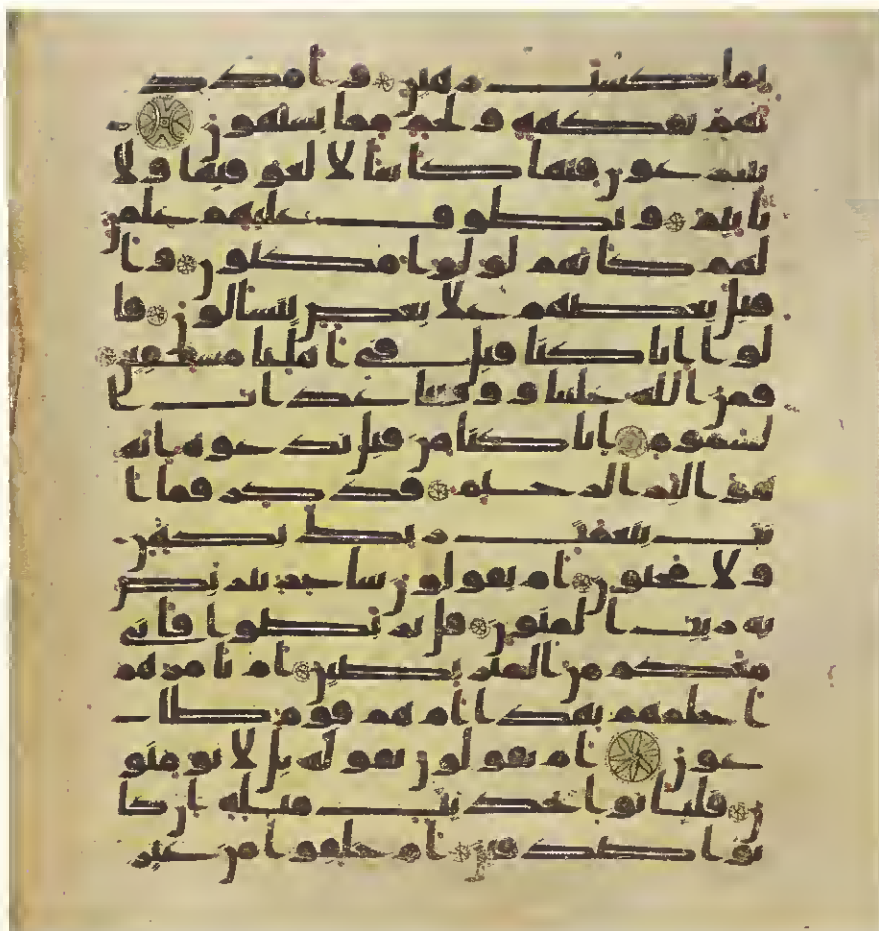 بما كسب رهين وامدد
نهم بفكهة ولحم مما يشتهون
يتنزعون فيها كاسا لا لغو فيها ولا
تاثيم ويطوف عليهم غلمن
لهم كانهم لولو مكنون وا
قبل بعضهم على بعض يتسالون قا
لوا انا كنا قبل في اهلنا مشفقين
فمن الله علينا ووقينا عذاب ا
لسموم انا كنا من قبل ندعوه انه
هو البر الرحيم فذكر فما ا
نت بنعمت ربك بكهن
ولا مجنون ام يقولون شاعر نتربص
به ريب المنون قل تربصوا فاني
معكم من المتربصين ام تامرهم
احلمهم بهذا ام هم قوم طا
غون ام يقولون تقوله بل لا يومنو
ن فلياتوا بحديث مثله ان كا
نوا صدقين ام خلقوا من غير